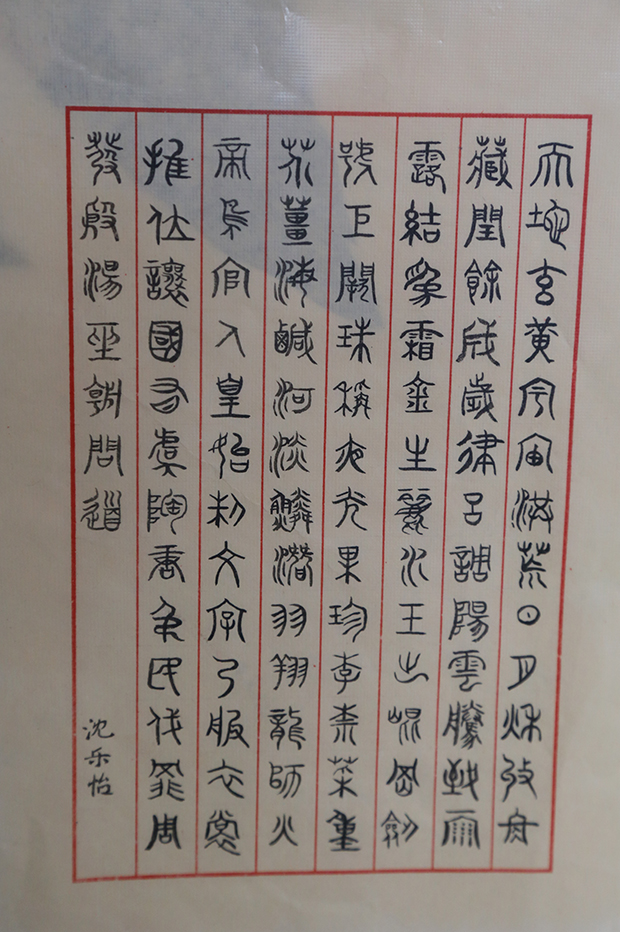 天地玄黃宇宙洪荒日月秋收冬
藏閏餘成歲律呂調陽雲騰致雨
露結為霜金生麗水玉出崐岡劍
號巨闕珠稱夜光果珍李柰菜重
芥薑海鹹河淡鱗潛羽翔龍師火
帝鳥官人皇始制文字乃服衣裳
推位讓國有虞陶唐弔民伐罪周
發殷湯坐朝問道
沈乐怡